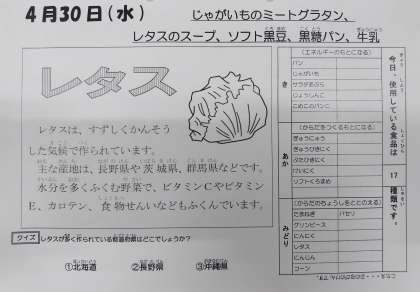 4月30日(水)
じゃがいものミートグラタン、
レタスのスープ、ソフト黒豆、黒糖パン、牛乳
レタス
レタスは、すずしくかんそう
した気候で作られています。
主な産地は、長野県や茨城県、群馬県などです。
水分を多くふくむ野菜で、ビタミンCやビタミン
E、カロテン、食物せんいなどもふくんでいます。
クイズ レタスが多く作られている都道府県はどこでしょうか?
①北海道 ②長野県 ③沖縄県
今日、使用している食品は
17
種類です。
き
(エネルギーのもとになる)
パン
じゃがいも
サラダあぶら
じょうしんこ
こめこのパンこ
あか
(からだをつくるもとになる)
ぎゅうにゅう
ぎゅうひきにく
ぶたひきにく
けいにく
ソフトくろまめ
みどり
(からだのちょうしをととのえる)
たまねぎ パセリ
グリンピース
にんにく
レタス
にんじん
コーン